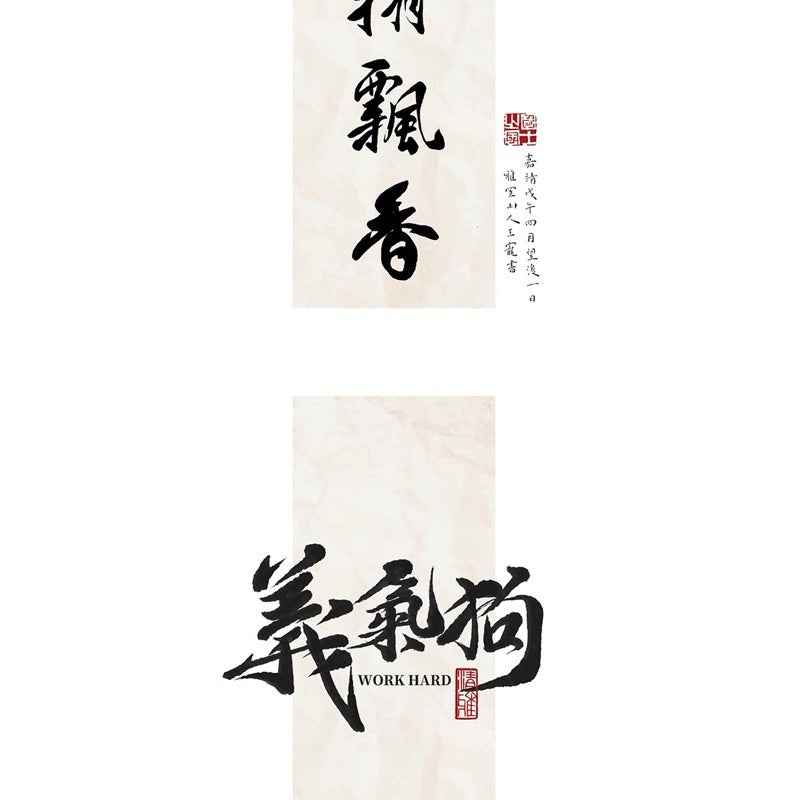 飄
香
嘉清戊午四月望後一日
雅宜山人王寵書
義氣狗
WORK HARD
清雅